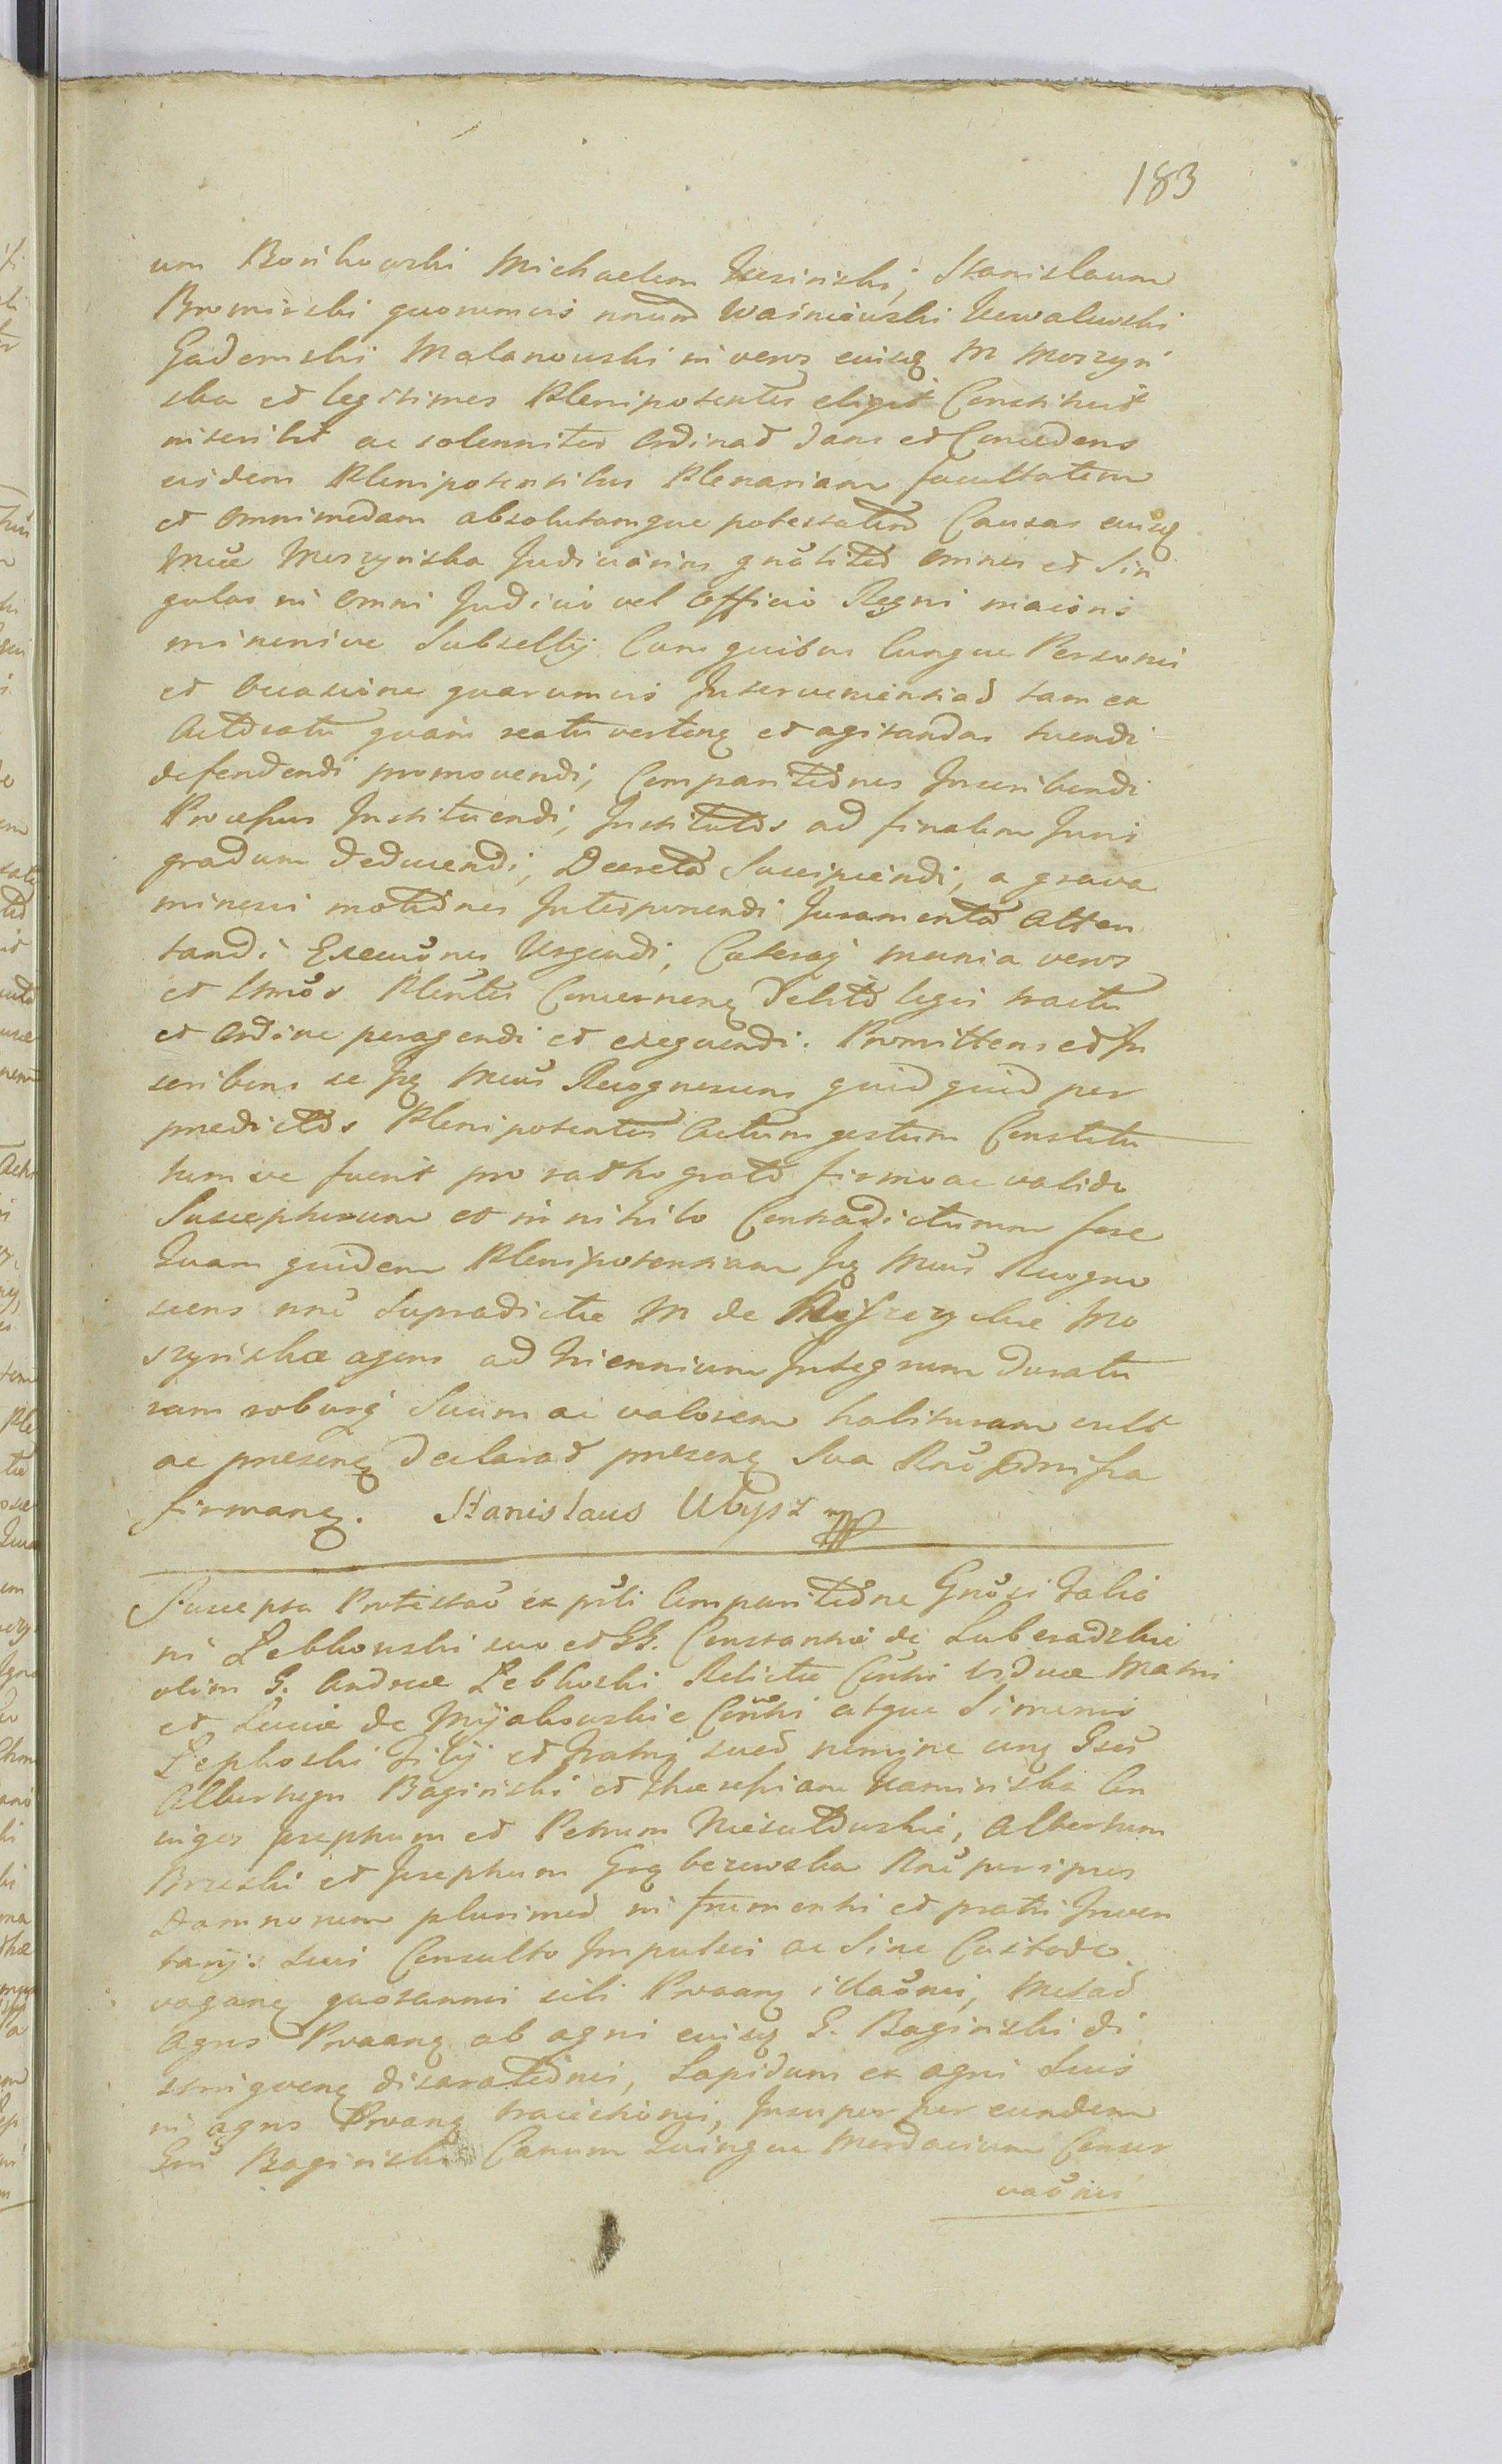 183
um Bońkowski Michaelem Kesinski, Stanislaum
Bromirski quorumvis unum Waśniewski Kowalewski
Gadomski Malanowski in veros eiusq M Moszyń
ska et legitimos Plenipotentes eligit Constituit
inscribit ac solenniter Ordinat dans et Concedens
eisdem Plenipotentibus Plenariam facultatem
et Omnimodam absolutamque potestatem Causas eiusq
Mcae Moszynska Judiciarias gnaliter omnes et Sin
gulas in Omni Judicio vel Officio Regni maioris
minorisve Subsellij Cum quibus Cunque Personis
et Occasione quarumvis Intervenientiad tam ex
Actoratu quam reatu verteñ et agitandas tuendi
defendendi promovendi, Comparitiones Inscribendi
Processus Instituendi, Institutos ad finalem Juris
gradum deducendi, Decreta Suscipiendi, a grava
minesvi motiones Interponendi Juramenta Atten
tandi Execuoñes Urgendi, Caeteraq munia veros
et Ltmos Pleñtes Concerneñ debito legis tractu
et Ordine peragendi et exequendi. Promittens et In
scribens se Iq Mcus Recognoscens quid quid per
praedictos Plenipotentes Actum gestum Constitu
tum ve fuerit pro ratho grato firmo ac valido
Suscepturum et in nihilo Contradicturum fore
Quam quidem Plenipotentiam Iq Mcus Recogno
scens nne Supradictae M de
Mo
szynskae agens ad triennium Integrum duratu
ram roburq Suum ac valorem habituram vult
ac praeseñ declarat praeseñ Sua Rne
firmañ. Stanislaus Ubysz
Suscepta Protestao ex pñti Comparitione Gnosi Falio
ni Lebkowski suo et GG. Constantiae de Luberadzkie
olim G. Andreae Lebkoski Relictae Conthi viduae Matris
et Luciae de Mijakowskie Conthi atque Simonis
Lepkoski filij et fratris sueo nomine cuñ Gsos
Albertum Baginski et Theresiam Kaminska Con
iuges Josephum et Petrum Niesułowskie, Albertum
Brzeski et Josephum Grębczewska Rne per ipsos
Damnorum plurimor in frumentis et pratis Inven
tarij. Suis Consulto Impulsi ac Sine Custode
vagañ quotannis sibi Proañ illaoñis, Metas
Agros Proañ ab agris eiusq G. Baginski di
stingveñ disaratiõnis, Lapidum ex agris Suis
in agros Proañ traiectionis, Insuper per eundem
Gm Baginski Canum Quinque Mordacium Conser
vaoñis